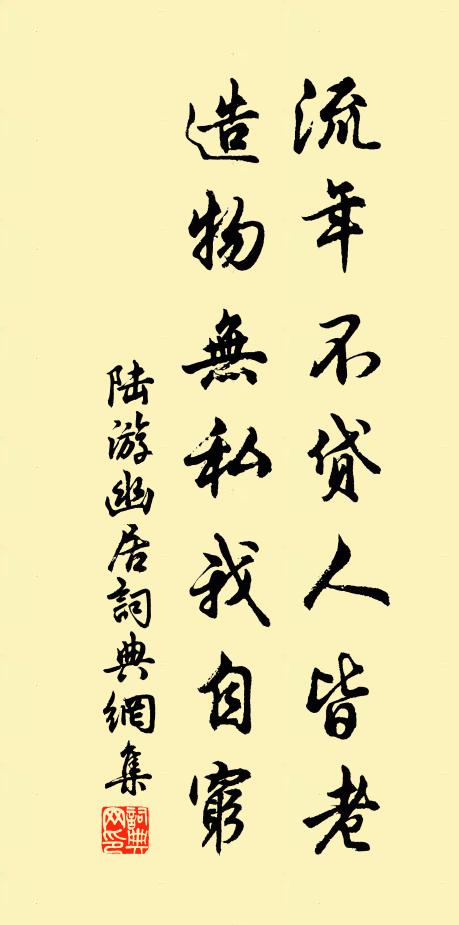 流年不貸人皆老
造物無私我自窮
陸游幽居詞典網集
詞典網印